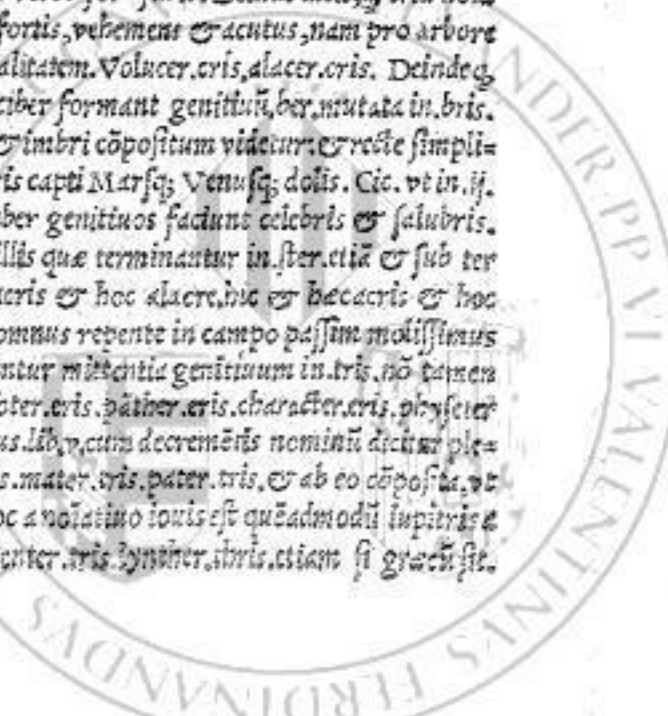 fortis,vehemens & acutus,nam pro arbore
alitatem.Volucer.cris,alacer.cris. Deinde q̃
ciber formant genitiuũ,ber,mutata in.bris.
& imbri cõpoſitum videtur:& recte ſimpli=
is capti Marſq; Venuſq; dolis. Cic. vt in.ij.
ber genitiuos faciunt celebris & ſalubris.
illis quæ terminantur in.ſter.etiã & ſub ter
acris & hoc alacre,hic & hæc acris & hoc
omnus repente in campo paſſim molliſſimus
ntur mittentia genitiuum in.tris.nõ tamen
ter.eris.pãther.eris.character.eris.phyſeter
us.lib.v.cum decremẽtis nominũ dicitur ple=
s.mater.tris.pater.tris.& ab eo cõpoſita,vt
oc a noĩatiuo iouis eſt quẽadmodũ iupitris a
enter.tris.lynther.thris.etiam ſi græcũ ſit.
NDER·PP·VI·VALENTINVS·FERDINANDVS